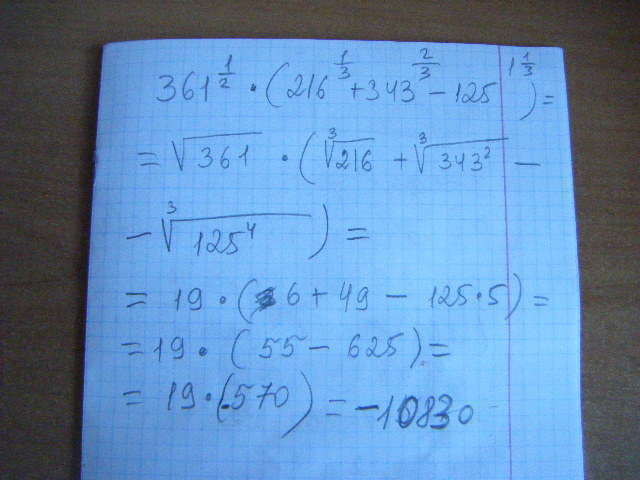 361^(1/2) · (216^(1/3) + 343^(2/3) - 125^(1 1/3)) =
= √361 · (∛216 + ∛343² -
- ∛125⁴) =
= 19 · (6 + 49 - 125·5) =
= 19 · (55 - 625) =
= 19 · (-570) = -10830